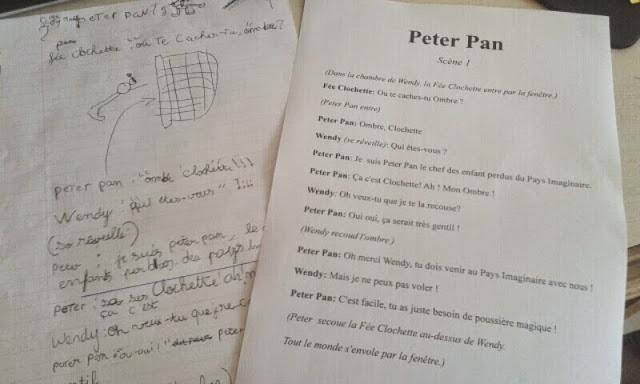 Peter pan
Fée Clochette : où Te Caches-Tu, ombre?
peter pan : "ombre Clochette!!!
Wendy "qui êtes-vous" !!!!
(se réveille.)
peter : je suis peter pan, le c
enfants perdus des pays Im
peter : Clochette! ah, m
ça c'est
Wendy : Oh veux-tu que je
peter pan : "oui oui, peter
Peter Pan
Scène 1
(Dans la chambre de Wendy. la Fée Clochette entre par la fenêtre.)
Fée Clochette: Ou te caches-tu Ombre ?
(Peter Pan entre)
Peter Pan: Ombre, Clochette
Wendy (se réveille): Qui êtes-vous ?
Peter Pan: Je suis Peter Pan le chef des enfant perdus du Pays Imaginaire.
Peter Pan: Ça c'est Clochette! Ah ! Mon Ombre !
Wendy: Oh veux-tu que je te la recouse?
Peter Pan: Oui oui, ça serait très gentil !
(Wendy recoud l'ombre.)
Peter Pan: Oh merci Wendy, tu dois venir au Pays Imaginaire avec nous !
Wendy: Mais je ne peux pas voler !
Peter Pan: C'est facile, tu as juste besoin de poussière magique !
(Peter secoue la Fée Clochette au-dessus de Wendy.
Tout le monde s'envole par la fenêtre.)